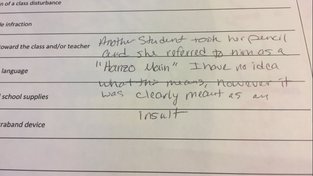 n of a class disturbance
le infraction
toward the class and/or teacher
language
school supplies
traband device
Another Student took her pencil
and she referred to him as a
"Hanzo Main" I have no idea
what this means, however it
was clearly meant as an
Insult